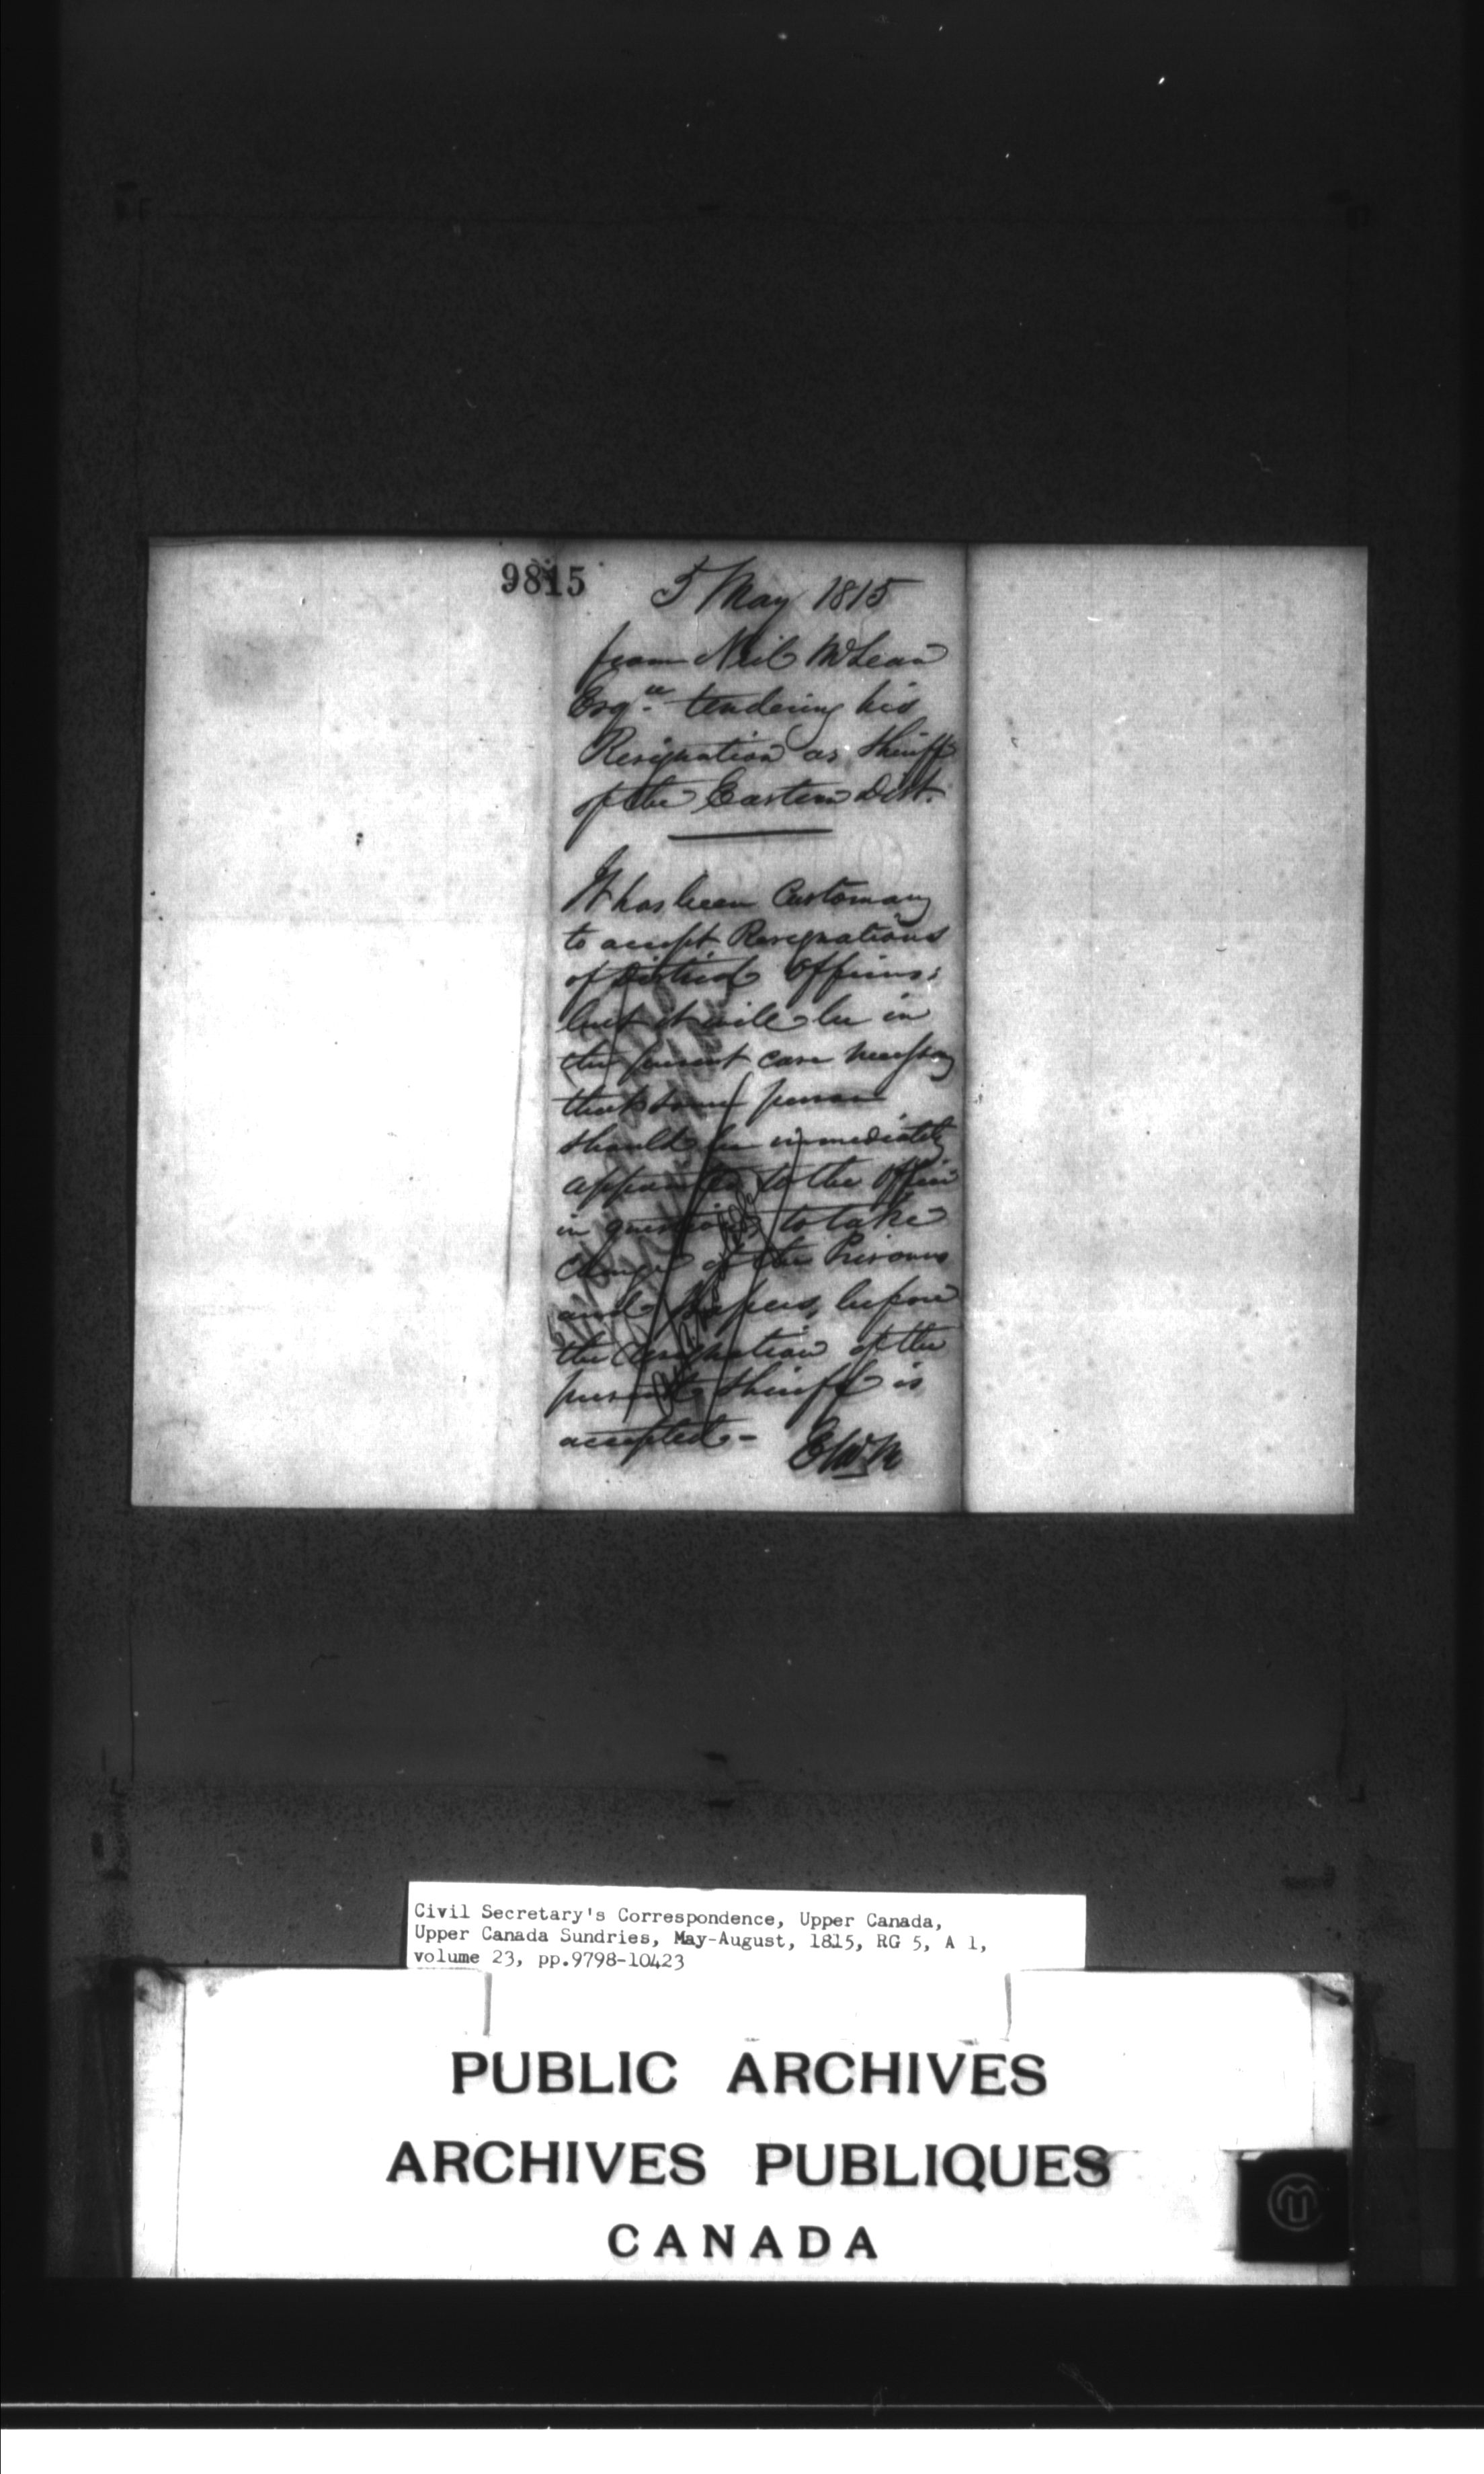 9815
5 May 1815
from Neil McLean
Esqre. tendering his
Resignation as Sheriff
of the Eastern Dist.
It has been Customary
to accept Resignations
of District Officers;
but it will be in
the present case necessary
that some person
should be immediately
appointed to the Office
in question, to take
charge of the Prisoners
and Papers, before
the Resignation of the
present Sheriff is
accepted -
Civil Secretary's Correspondence, Upper Canada,
Upper Canada Sundries, May-August, 1815, RG 5, A 1,
volume 23, pp.9798-10423
PUBLIC ARCHIVES
ARCHIVES PUBLIQUES
CANADA